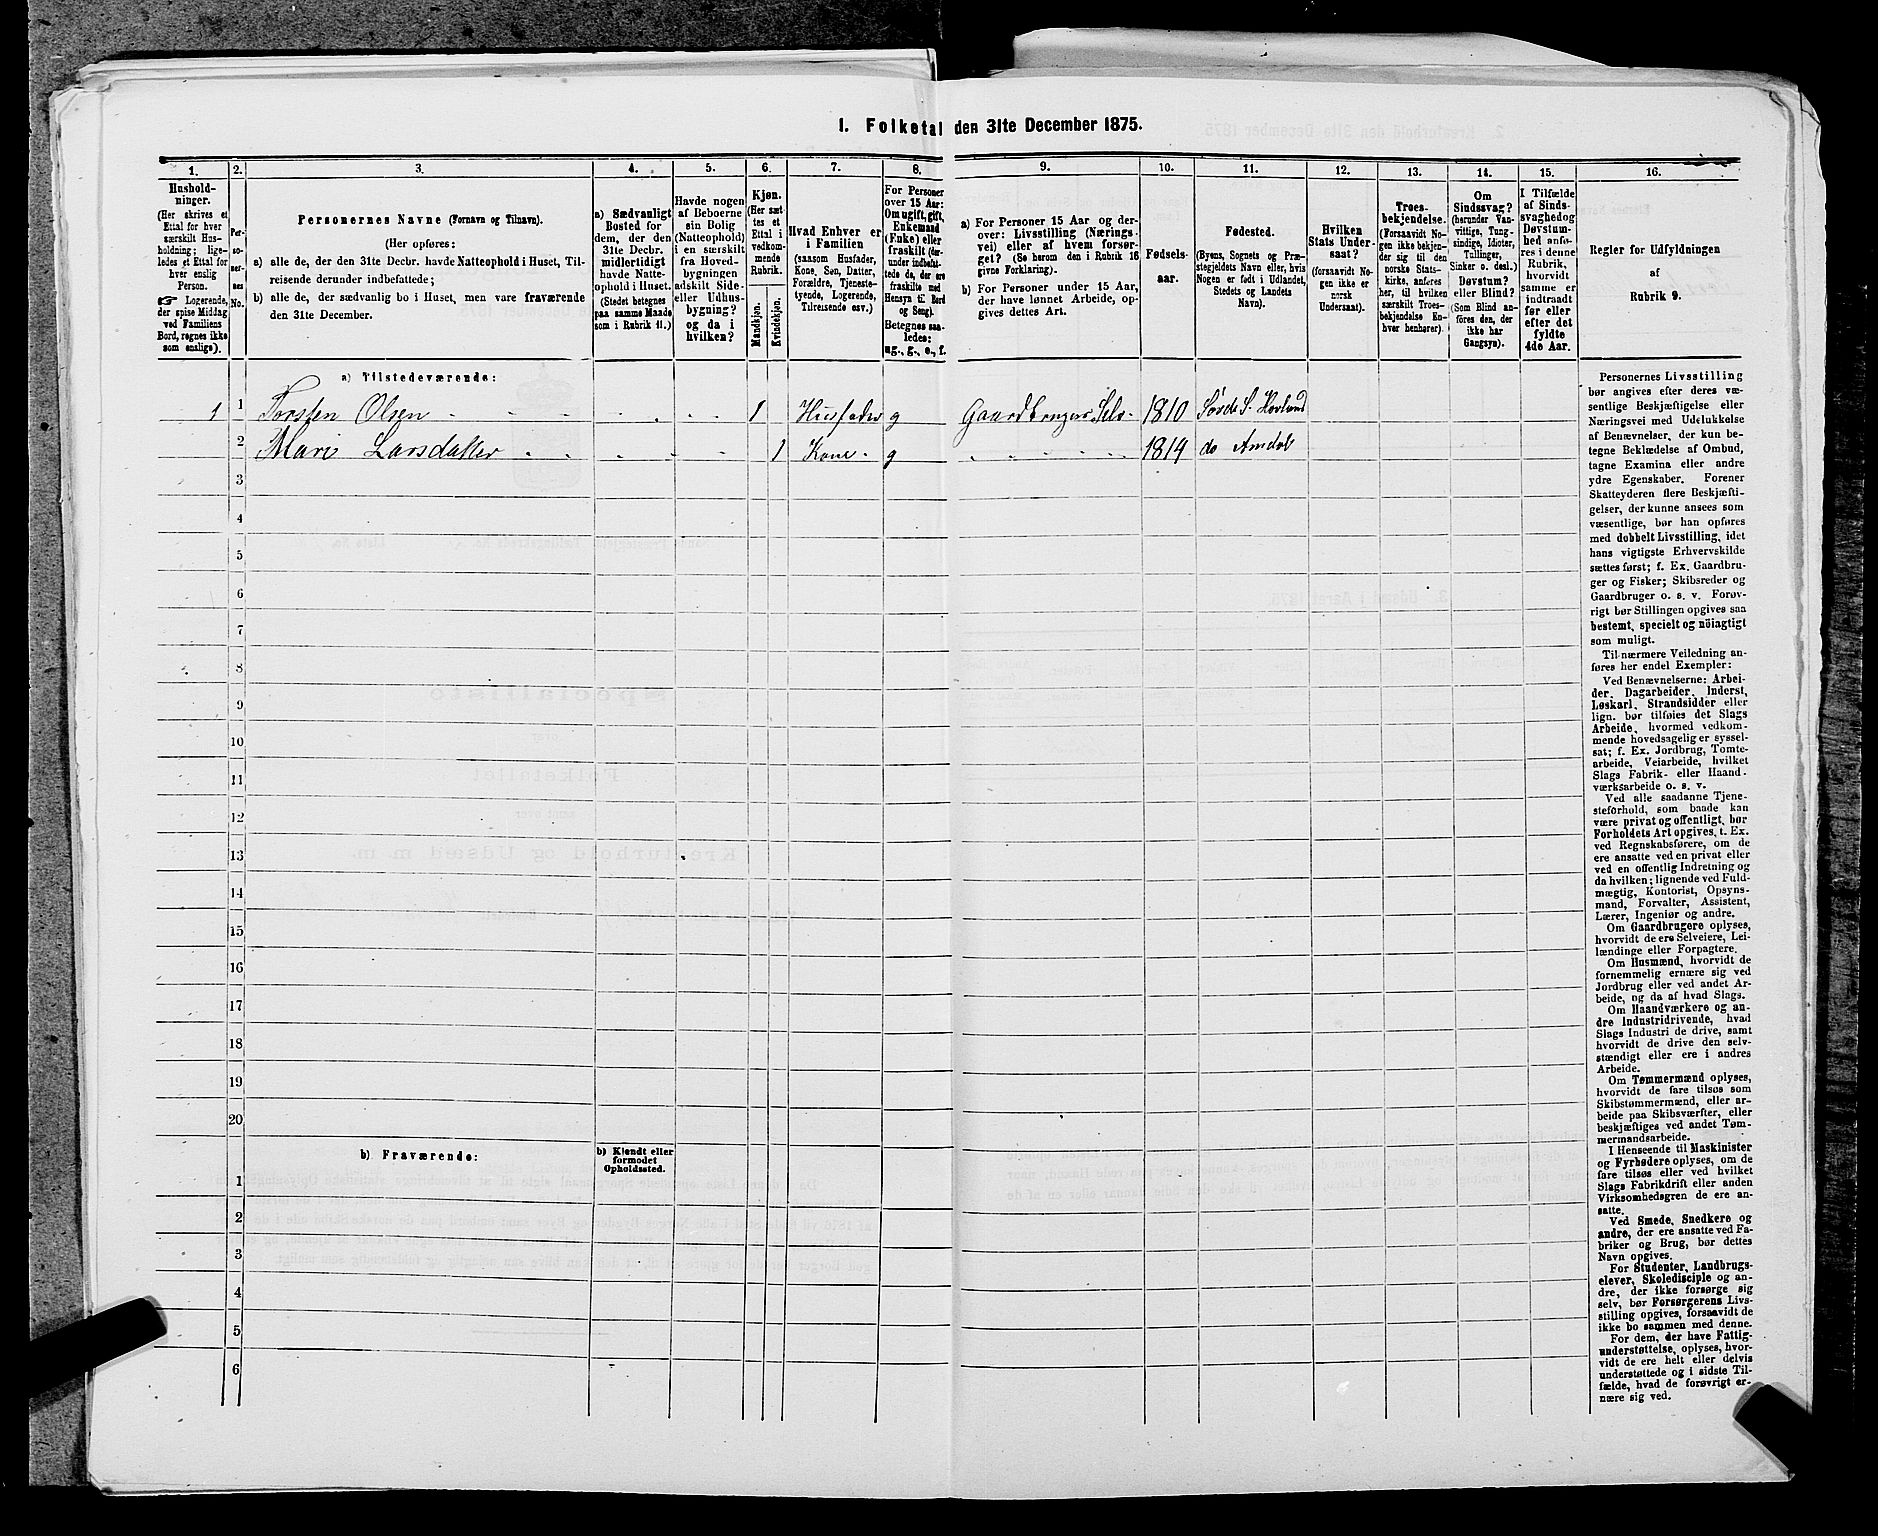 1. Folketal den 31te December 1875.
1.
Hushold-
ninger.
(Her skrives et
Ettal for hver
særskilt Hus-
holdning; lige-
ledes et Ettal for
hver enslig
Person.
☞ Logerende,
der spise Middag
ved Familiens
Bord, regnes ikke
som enslige).
2.
Per-
so-
ner-
nes
No.
3.
Personernes Navne (Fornavn og Tilnavn).
(Her opføres:
a) alle de, der den 31te Decbr. havde Natteophold i Huset, Til-
reisende derunder indbefattede;
b) alle de, der sædvanlig bo i Huset, men vare fraværende
den 31te December.
4.
a) Sædvanligt
Bosted for
dem, der den
31te Decbr.
midlertidigt
havde Natte-
ophold i Huset.
(Stedet betegnes
paa samme Maade
som i Rubrik 11.)
5.
Havde nogen
af Beboerne
sin Bolig
(Natteophold)
i en særskilt
fra Hoved-
bygningen
adskilt Side-
eller Udhus-
bygning?
og da i
hvilken?
6.
Kjøn.
(Her sæt-
tes et
Ettal i
vedkom-
mende
Rubrik.
Mandkjøn.
Kvindekjøn.
7.
Hvad Enhver er
i Familien
(saasom Husfader,
Kone, Søn, Datter,
Forældre, Tjeneste-
tyende, Logerende,
Tilreisende osv.)
8.
For Personer
over 15 Aar:
Om ugift, gift,
Enkemand
(Enke) eller
fraskilt (der-
under indbefat-
tede de, der ere
fraskilte med
Hensyn til Bord
og Seng).
Betegnes saa-
ledes:
ug., g., e., f.
9.
a) For Personer 15 Aar og der-
over: Livsstilling (Nærings-
vei) eller af hvem forsør-
get? (Se herom den i Rubrik 16
givne Forklaring).
b) For Personer under 15 Aar,
der have lønnet Arbeide, op-
gives dettes Art.
10.
Fødsels-
aar.
11.
Fødested.
(Byens, Sognets og Præ-
stegjeldets Navn eller, hvis
Nogen er født i Udlandet,
Stedets og Landets
Navn).
12.
Hvilken
Stats Under-
saat?
(forsaavidt No-
gen ikke er
norsk
Undersaat).
13.
Troes-
bekjendelse.
(Forsaavidt No-
gen ikke bekjen-
der sig til den
norske Stats-
kirke, anføres
her, til hvilken
særskilt Troes-
bekjendelse En-
hver henhører).
14.
Om
Sindssvag?
(herunder Van-
vittige, Tung-
sindige, Idioter,
Tullinger,
Sinker o. desl.)
Døvstum?
eller Blind?
(Som Blind an-
føres den, der
ikke har
Gangsyn).
15.
I Tilfælde
af Sinds-
svaghed og
Døvstum-
hed anfø-
res i denne
Rubrik,
hvorvidt
samme er
indtraadt
før eller
efter det
fyldte
4de Aar.
16.
Regler for Udfyldningen
af
Rubrik 9.
a) Tilstedeværende:
1 1 Torsten Olsen 1 Husfader g Gaardbruger Selv- 1810 Sørde S. Hovland
2 Mari Larsdatter 1 Kone g 1814 do Amdal
3
4
5
6
7
8
9
10
11
12
13
14
15
16
17
18
19
20
b) Fraværende:
b) Kjendt eller
formodet
Opholdssted.
1
2
3
4
5
6
Personernes Livsstilling
bør angives efter deres væ-
sentlige Beskjæftigelse eller
Næringsvei med Udelukkelse
af Benævnelser, der kun be-
tegne Beklædelse af Ombud,
tagne Examina eller andre
ydre Egenskaber. Forener
Skatteyderen flere Beskjæfti-
gelser, der kunne ansees som
væsentlige, bør han opføres
med dobbelt Livsstilling, idet
hans vigtigste Erhvervskilde
sættes først; f. Ex. Gaardbru-
ger og Fisker; Skibsreder og
Gaardbruger o. s. v. Forøv-
rigt bør Stillingen opgives saa
bestemt, specielt og nöiagtigt
som muligt.
Til nærmere Veiledning an-
føres her endel Exempler:
Ved Benævnelserne: Arbei-
der, Dagarbeider, Inderst,
Løskarl, Strandsidder eller
lign. bør tilføies det Slags
Arbeide, hvormed vedkom-
mende hovedsagelig er syssel-
sat; f. Ex. Jordbrug, Tomte-
arbeide, Veiarbeide, hvilket
Slags Fabrik- eller Haand-
værksarbeide o. s. v.
Ved alle saadanne Tjene-
steforhold, som baade kan
være privat og offentligt, bør
Forholdets Art opgives, t. Ex.
ved Regnskabsførere, om de
ere ansatte ved en privat eller
ved en offentlig Indretning og
da hvilken; lignende ved Fuld-
mægtig, Kontorist, Opsyns-
mand, Forvalter, Assistent,
Lærer, Ingeniør og andre.
Om Gaardbrugere oplyses,
hvorvidt de ere Selveiere, Lei-
lændinge eller Forpagtere.
Om Husmænd, hvorvidt de
fornemmelig ernære sig ved
Jordbrug eller ved andet Ar-
beide, og da af hvad Slags.
Om Haandværkere og an-
dre Industridrivende, hvad
Slags Industri de drive, samt
hvorvidt de drive den selv-
stændigt eller ere i andres
Arbeide.
Om Tømmermænd oplyses,
hvorvidt de fare tilsøs som
Skibstømmermænd, eller ar-
beide paa Skibsværfter, eller
beskjæftiges ved andet Tøm-
mermandsarbeide.
I Henseende til Maskinister
og Fyrbødere oplyses, om de
fare tilsøs eller ved hvilket
Slags Fabrikdrift eller anden
Virksomhedsgren de ere an-
satte.
Ved Smede, Snedkere og
andre, der ere ansatte ved Fa-
briker og Brug, bør dettes
Navn opgives.
For Studenter, Landbrugs-
elever, Skoledisciple og an-
dre, der ikke forsørge sig
selv, bør Forsørgerens Livs-
stilling opgives, forsaavidt de
ikke bo sammen med denne.
For dem, der have Fattig-
understøttelse, oplyses, hvor-
vidt de ere helt eller delvis
understøttede og i sidste Til-
fælde, hvad de forøvrigt er-
nære sig ved.